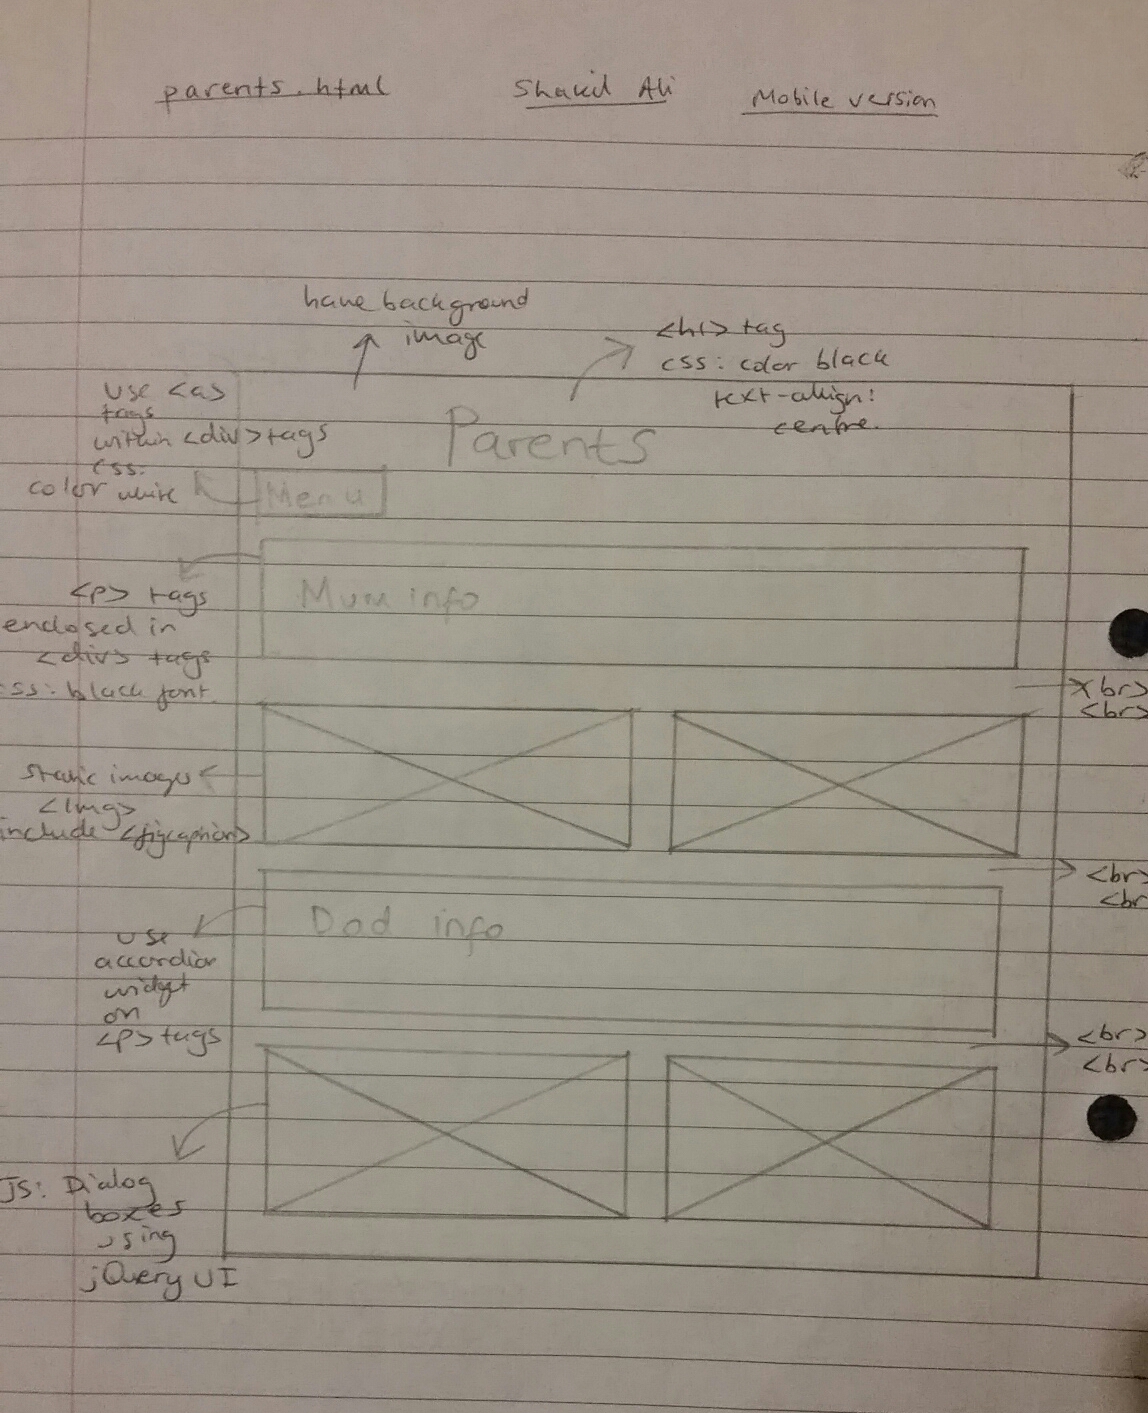 parents.html
Shakil Ali
Mobile version
have background
image
<h1> tag
css: color black
text-align:
centre.
use <a>
tags
within <div> tags
css:
color white
Parents
Menu
Mum info
<p> tags
enclosed in
<div> tags
css: black font.
<br>
<br>
static images
<img>
include <figcaption>
<br>
<br
Dad info
use
accordion
widget
on
<p> tags
<br>
<br>
JS: Dialog
boxes
using
jQuery UI